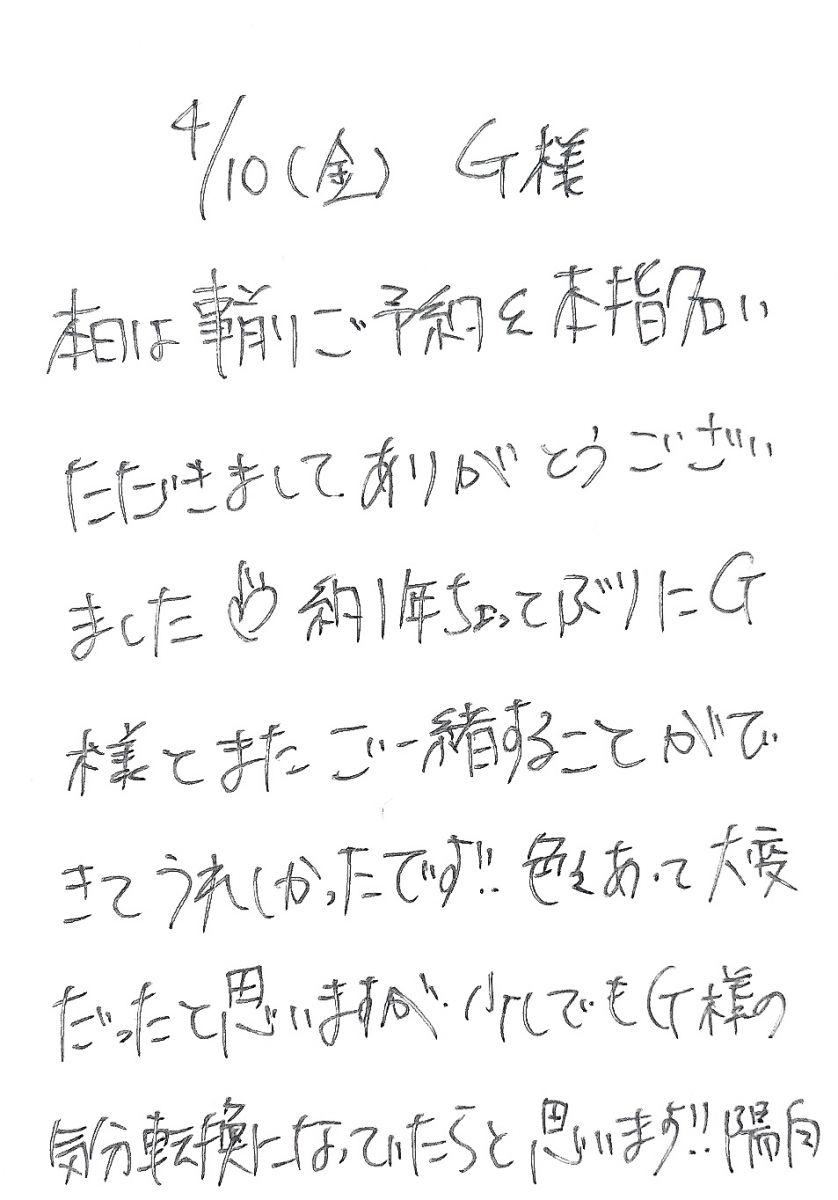 4/10(金) G様
本日は事前にご予約を本指名い
ただきましてありがとうござい
ました 約1年ちょってぶりにG
様とまたご一緒することがで
きてうれしかったです!! 色々あって大変
だったと思いますが、少しでもG様の
気分転換になっていたらと思います!! 陽向